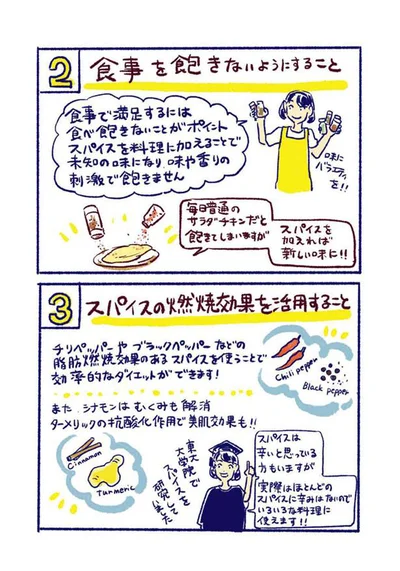 2 食事を飽きないようにすること
食事で満足するには
食べ飽きないことがポイント
スパイスを料理に加えることで
未知の味になり、味や香りの
刺激で飽きません
味に
バラエティ
を!!
毎日普通の
サラダチキンだと
飽きてしまいますが
スパイスを
加えれば
新しい味に!!
3 スパイスの燃焼効果を活用すること
チリペッパーやブラックペッパーなどの
脂肪燃焼効果のあるスパイスを使うことで
効率的なダイエットができます!
Chili pepper
Black pepper
また、シナモンはむくみも解消
ターメリックの抗酸化作用で美肌効果も!!
Cinnamon
Turmeric
東大院で
大学院
スパイスを
研究していました
スパイスは
辛いと思っている
方もいますが
実際はほとんどの
スパイスに辛みはないので
いろいろな料理に
使えます!!